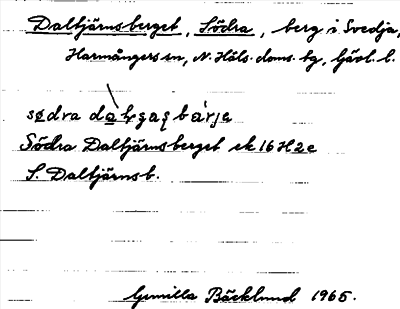 Daltjärnsberget, Södra, berg i Svedja,
Harmångers sn, N. Häls. doms. bg, Gävl. l.
södra
Södra Daltjärnsberget ek 16H2e
S. Daltjärnsb.
Gunilla Bäcklund 1965.